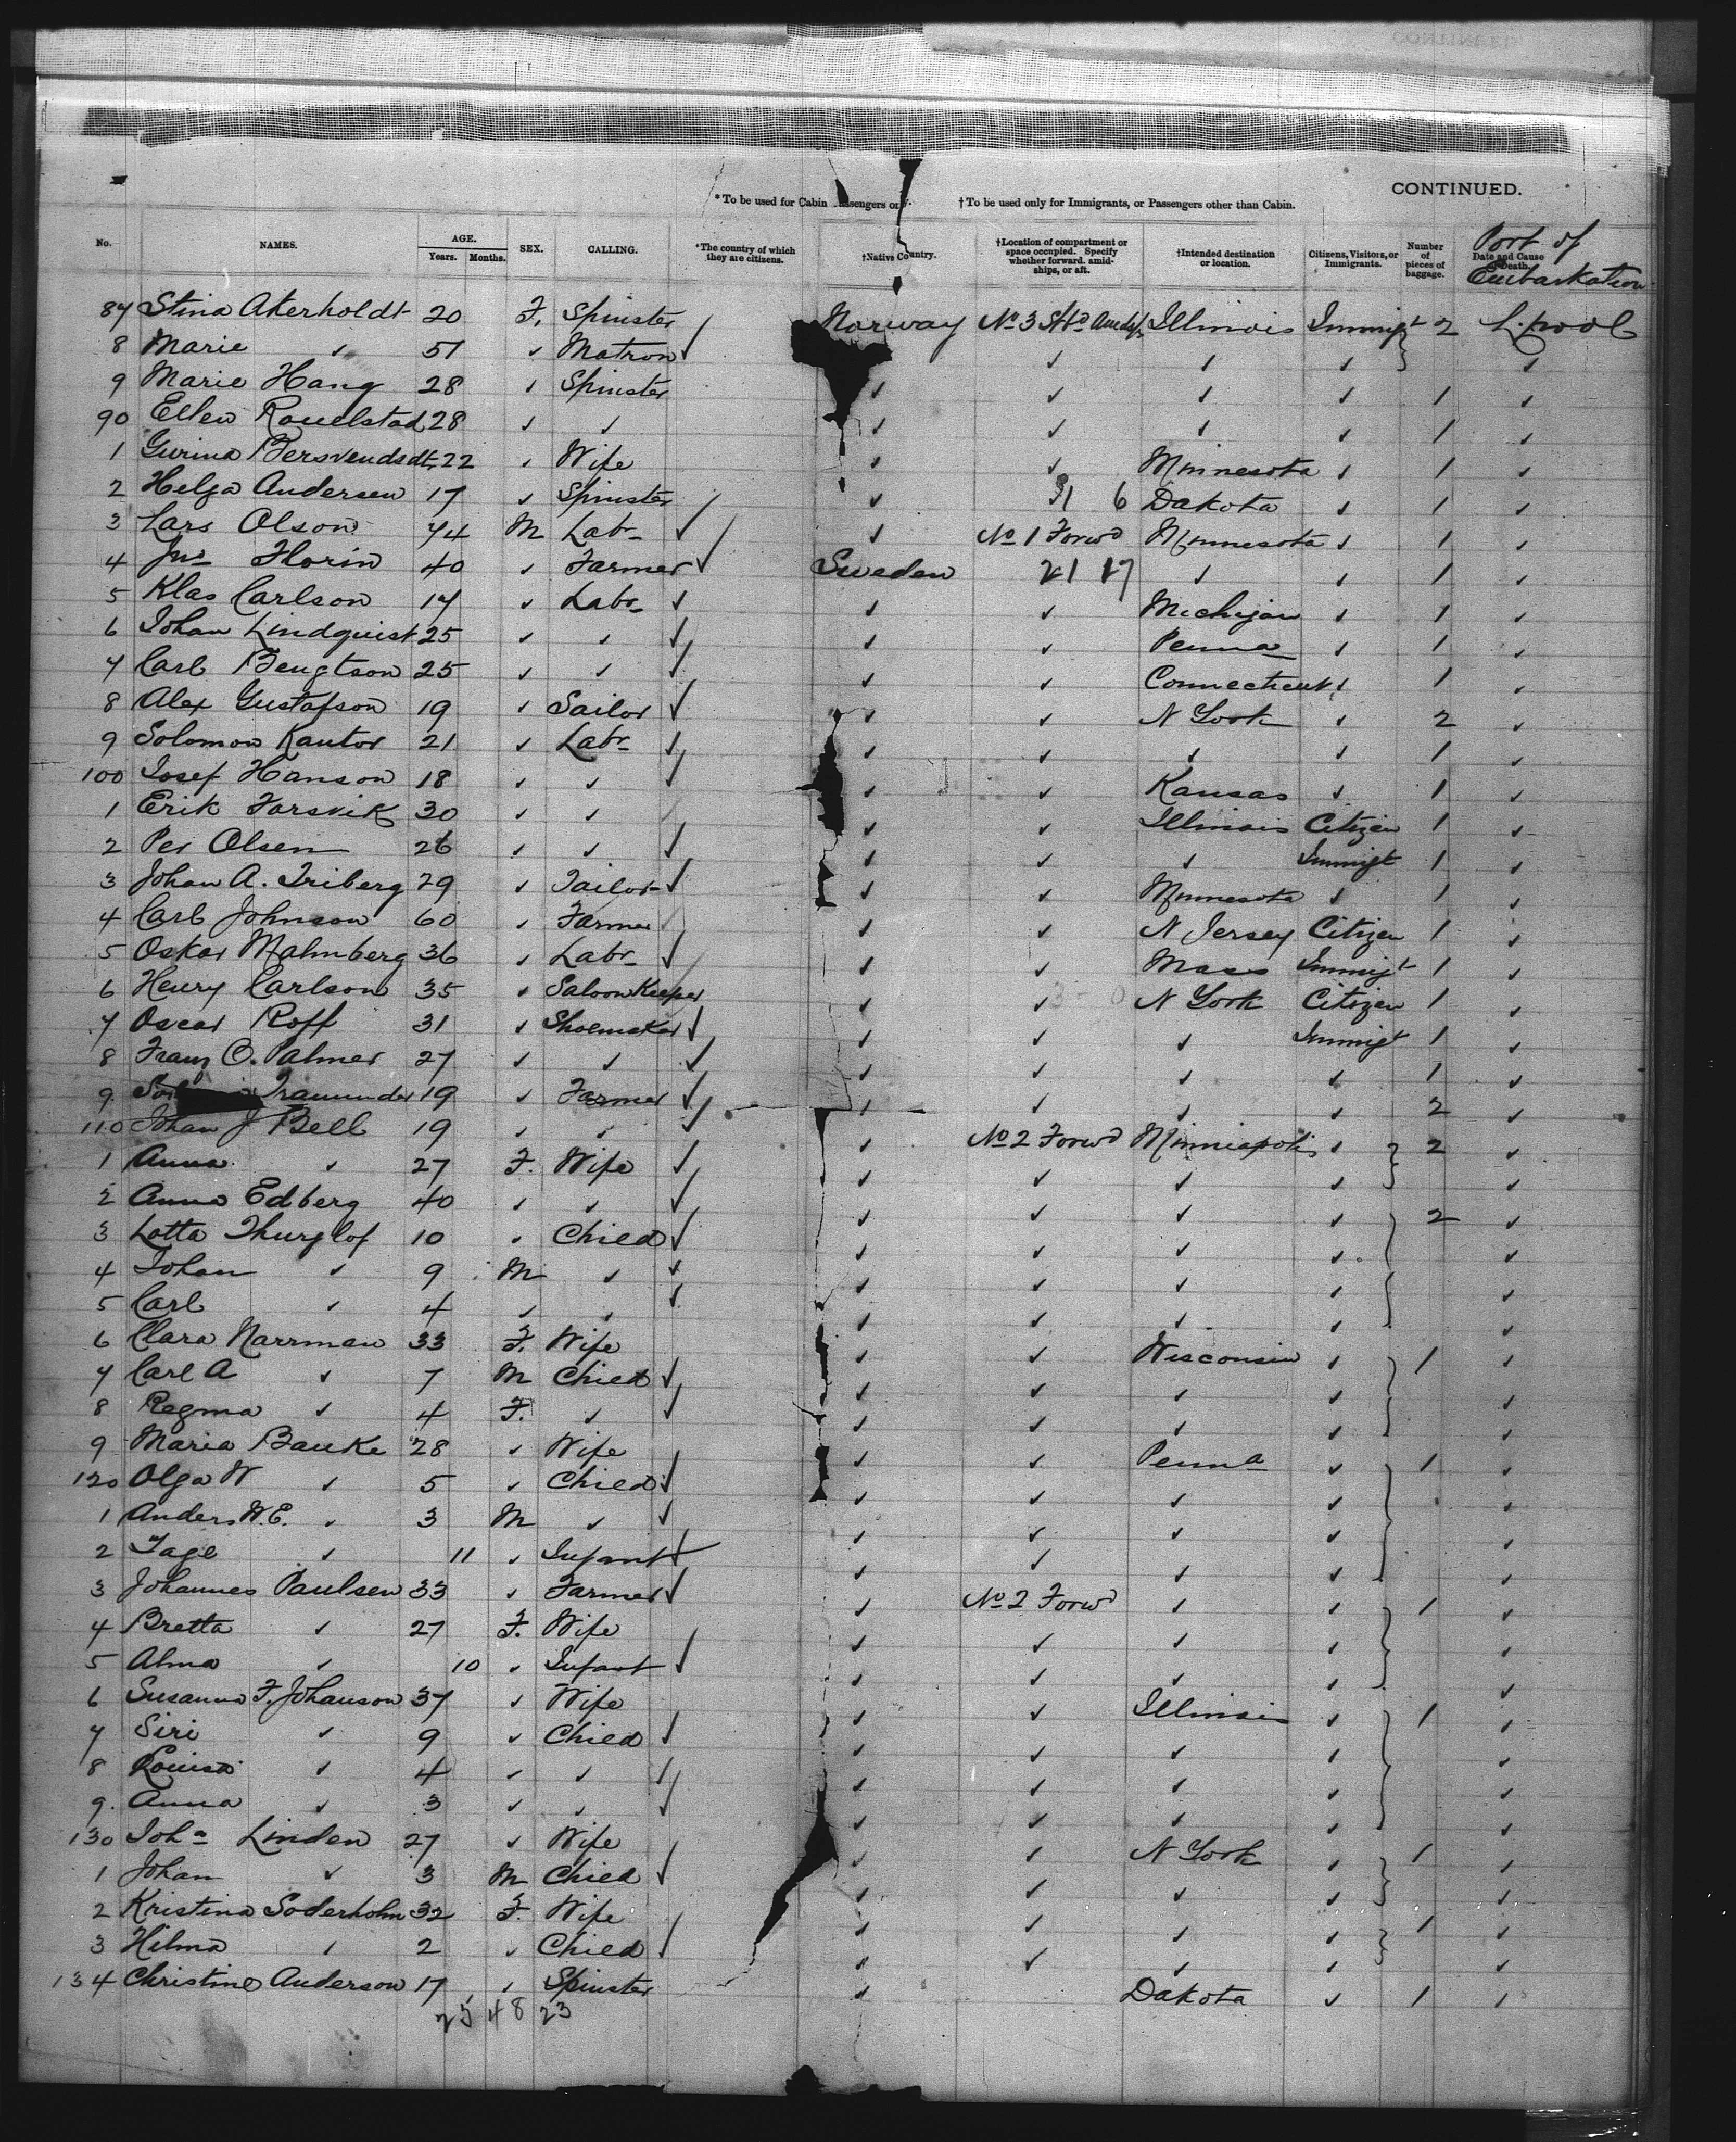 CONTINUED.
* To be used for Cabin Passengers only. † To be used only for Immigrants, or Passengers other than Cabin.
No. NAMES. AGE. Years. Months. SEX. CALLING. *The country of which they are citizens. †Native Country. †Location of compartment or space occupied. Specify whether forward, amidships, or aft. †Intended destination or location. Citizens, Visitors, or Immigrants. Number of pieces of baggage. Date and Cause of Death. Port of Embarkation
87 Stina Akerholdt 20 F. Spinster Norway No 3 Illinois Immigt 2 L.pool
8 Marie ✓ 51 ✓ Matron ✓ ✓ ✓ ✓ ✓
9 Marie Hang 28 ✓ Spinster ✓ ✓ ✓ ✓ 1 ✓
90 Ellen Rouelstad 28 ✓ ✓ ✓ ✓ ✓ ✓ 1 ✓
1 Gurina Bersvendsdt 22 ✓ Wife ✓ ✓ Minnesota ✓ 1 ✓
2 Helga Andersen 17 ✓ Spinster ✓ 31 6 Dakota ✓ 1 ✓
3 Lars Olson 74 M Labr ✓ ✓ No 1 Forwd Minnesota ✓ 1 ✓
4 Jno Florin 40 ✓ Farmer ✓ Sweden 21 17 ✓ ✓ 1 ✓
5 Klas Carlson 17 ✓ Labr ✓ ✓ ✓ Michigan ✓ 1 ✓
6 Johan Lindquist 25 ✓ ✓ ✓ ✓ ✓ Penna ✓ 1 ✓
7 Carl Bengtson 25 ✓ ✓ ✓ ✓ ✓ Connecticut ✓ 1 ✓
8 Alex Gustafson 19 ✓ Sailor ✓ ✓ ✓ N York ✓ 2 ✓
9 Solomon Kantor 21 ✓ Labr ✓ ✓ ✓ ✓ ✓ 1 ✓
100 Josef Hanson 18 ✓ ✓ ✓ ✓ ✓ Kansas ✓ 1 ✓
1 Erik Forsvik 30 ✓ ✓ ✓ ✓ ✓ Illinois Citizen 1 ✓
2 Per Olsen 26 ✓ ✓ ✓ ✓ ✓ ✓ Immigt 1 ✓
3 Johan A. Triberg 29 ✓ Tailor ✓ ✓ ✓ Minnesota ✓ 1 ✓
4 Carl Johnson 60 ✓ Farmer ✓ ✓ ✓ N Jersey Citizen 1 ✓
5 Oskar Malmberg 36 ✓ Labr ✓ ✓ ✓ Mass Immigt 1 ✓
6 Henry Carlson 35 ✓ Saloon Keeper ✓ ✓ N York Citizen 1 ✓
7 Oscar Roff 31 ✓ Shoemaker ✓ ✓ ✓ ✓ Immigt 1 ✓
8 Franz O. Palmer 27 ✓ ✓ ✓ ✓ ✓ ✓ ✓ 1 ✓
9 Tramunder 19 ✓ Farmer ✓ ✓ ✓ ✓ ✓ 2 ✓
110 Johan J Bell 19 ✓ ✓ ✓ ✓ No 2 Forwd Minniapolis ✓ 2 ✓
1 Anna ✓ 27 F. Wife ✓ ✓ ✓ ✓ ✓ ✓
2 Anna Edberg 40 ✓ ✓ ✓ ✓ ✓ ✓ ✓ 2 ✓
3 Lotta Thurglof 10 ✓ Child ✓ ✓ ✓ ✓ ✓ ✓
4 Johan ✓ 9 M ✓ ✓ ✓ ✓ ✓ ✓ ✓
5 Carl ✓ 4 ✓ ✓ ✓ ✓ ✓ ✓ ✓ ✓
6 Clara Narrman 33 F. Wife ✓ ✓ Wisconsin ✓ 1 ✓
7 Carl A ✓ 7 M Child ✓ ✓ ✓ ✓ ✓ ✓
8 Regma ✓ 4 F. ✓ ✓ ✓ ✓ ✓ ✓ ✓
9 Maria Banke 28 ✓ Wife ✓ ✓ Penna ✓ 1 ✓
120 Olga W ✓ 5 ✓ Child ✓ ✓ ✓ ✓ ✓ ✓
1 Anders W.E. ✓ 3 M ✓ ✓ ✓ ✓ ✓ ✓ ✓
2 Tage ✓ 11 ✓ Infant ✓ ✓ ✓ ✓ ✓ ✓
3 Johannes Paulsen 33 ✓ Farmer ✓ ✓ No 2 Forwd ✓ ✓ 1 ✓
4 Bretta ✓ 27 F. Wife ✓ ✓ ✓ ✓ ✓
5 Alma ✓ 10 ✓ Infant ✓ ✓ ✓ ✓ ✓ ✓
6 Susanna F. Johanson 37 ✓ Wife ✓ ✓ Illinois ✓ 1 ✓
7 Siri ✓ 9 ✓ Child ✓ ✓ ✓ ✓ ✓ ✓
8 Louisa ✓ 4 ✓ ✓ ✓ ✓ ✓ ✓ ✓ ✓
9. Anna ✓ 3 ✓ ✓ ✓ ✓ ✓ ✓ ✓ ✓
130 Joha Linden 27 ✓ Wife ✓ ✓ N York ✓ 1 ✓
1 Johan ✓ 3 M Child ✓ ✓ ✓ ✓ ✓ ✓
2 Kristina Soderholm 32 F. Wife ✓ ✓ ✓ ✓ 1 ✓
3 Hilma ✓ 2 ✓ Child ✓ ✓ ✓ ✓ ✓ ✓
134 Christine Anderson 17 ✓ Spinster ✓ Dakota ✓ 1 ✓
25 48 23